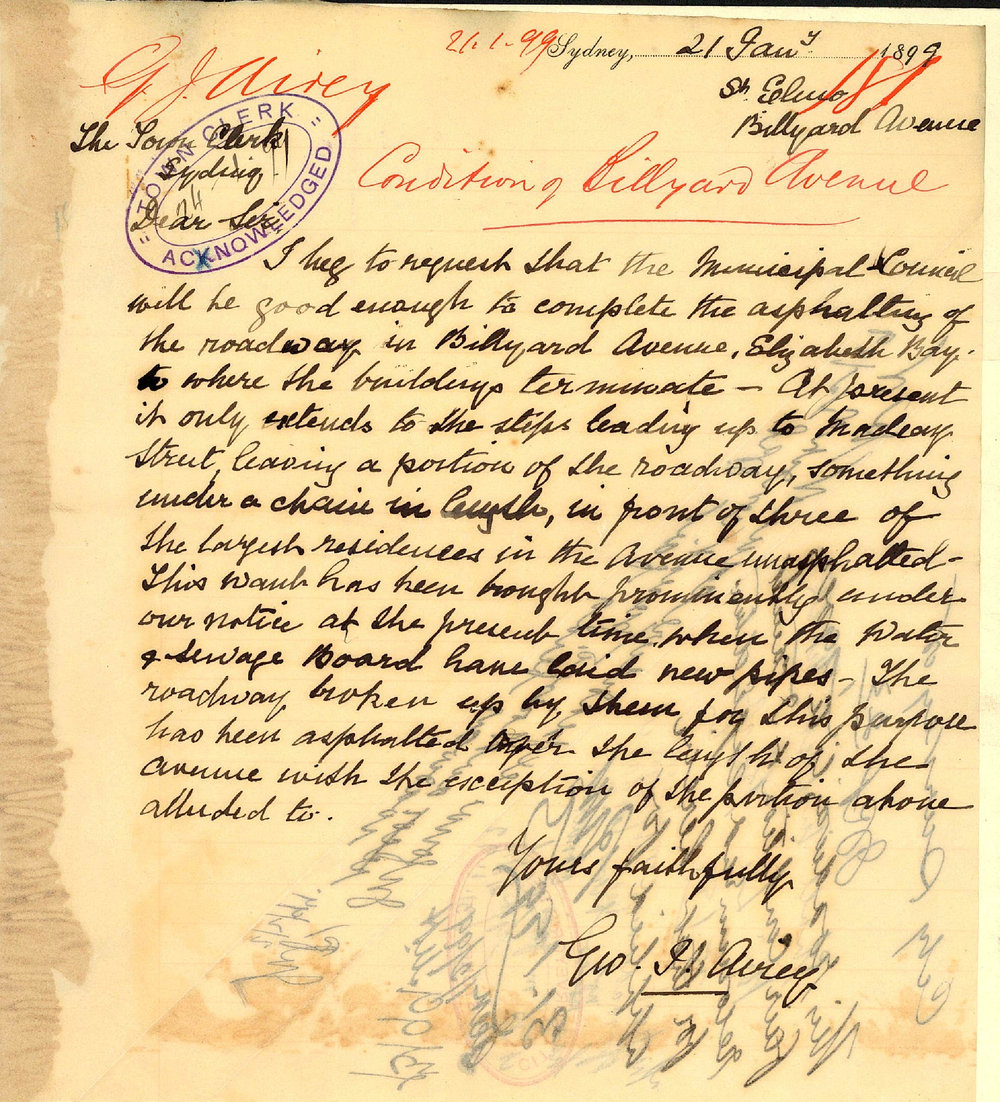 21.1.99 Sydney, 21 Jany 1899
G. J. Airey
St Elmo
Billyard Avenue
The Town Clerk
Sydney
"TOWN CLERK"
ACKNOWLEDGED
24
Condition of Billyard Avenue
Dear Sir
I beg to request that the Municipal Council
will be good enough to complete the asphalting of
the roadway in Billyard Avenue, Elizabeth Bay.
to where the buildings terminate – At present
it only extends to the steps leading up to Macleay
Street, leaving a portion of the roadway, something
under a chain in length, in front of three of
the largest residences in the Avenue unasphalted –
This want has been brought prominently under
our notice at the present time when the Water
& Sewage Board have laid new pipes – The
roadway broken up by them for this purpose
has been asphalted over the length of the
avenue with the exception of the portion above
alluded to.
Yours faithfully
Geo. J. Airey